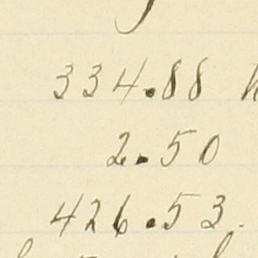 334.88
2.50
426.53.